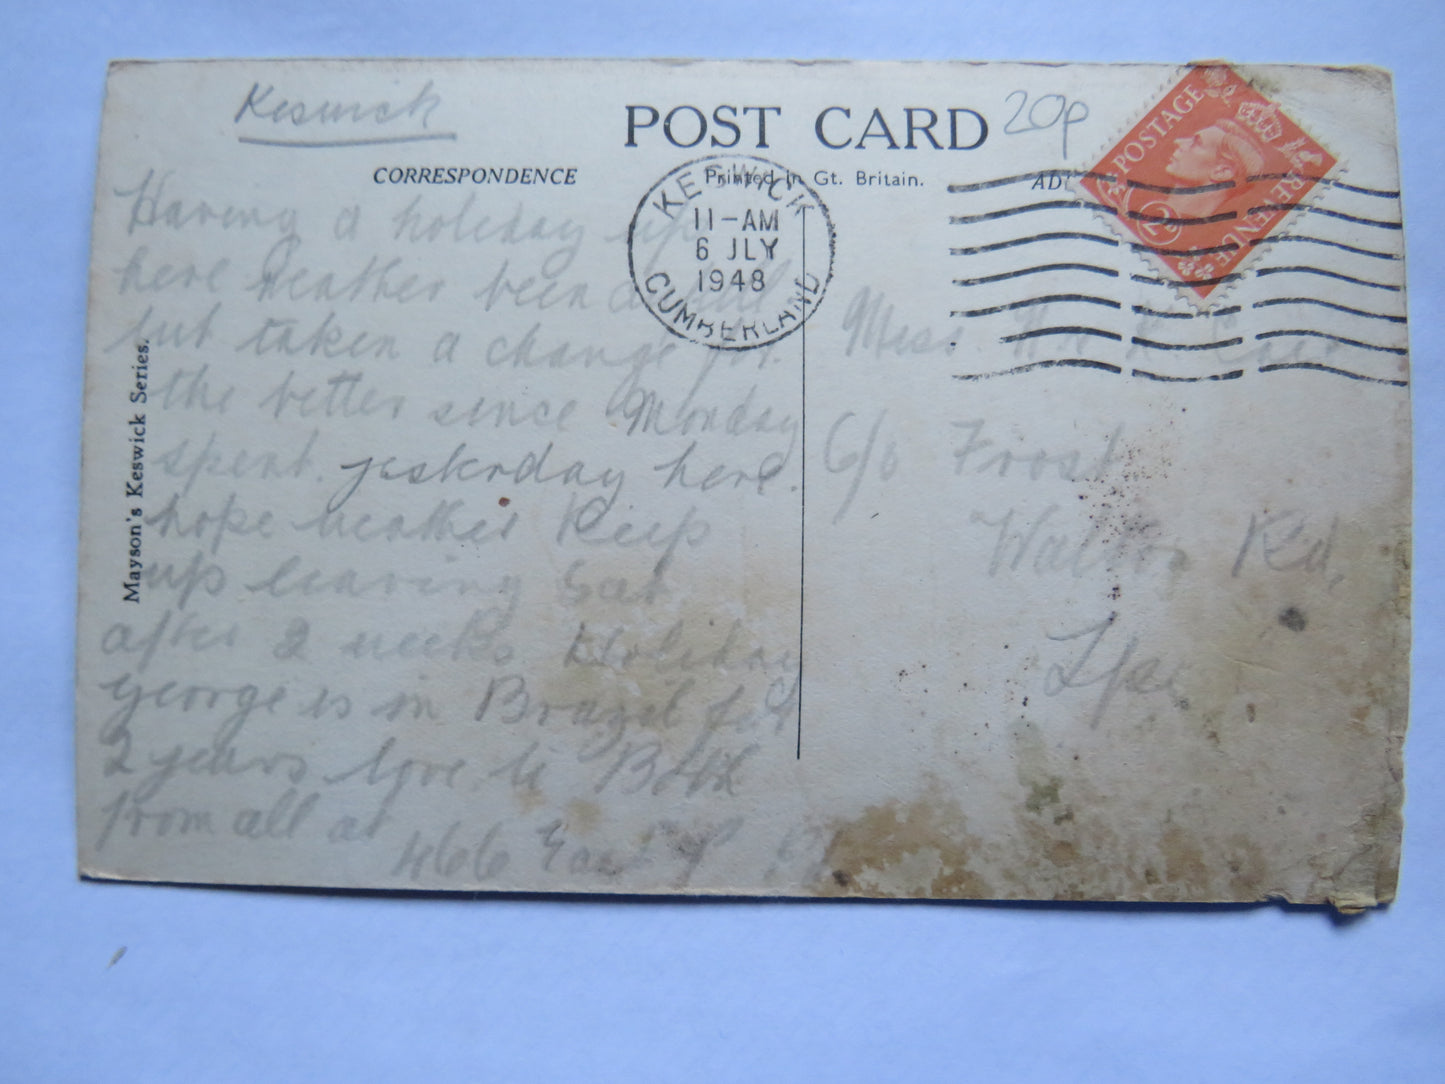 Keswick
POST CARD
20p
CORRESPONDENCE
Printed in Gt. Britain.
AD
POSTAGE
REVENUE
KESWICK
11-AM
6 JLY
1948
CUMBERLAND
Mayson's Keswick Series.
Having a holiday up
here weather been
but taken a change for
the better since Monday
spent yesterday here.
hope weather Keep
up leaving Sat
after 2 weeks Holiday
George is in Brazil for
2 years love to Both
from all at
466 East P
Miss
C/o Frost
Walton Rd,